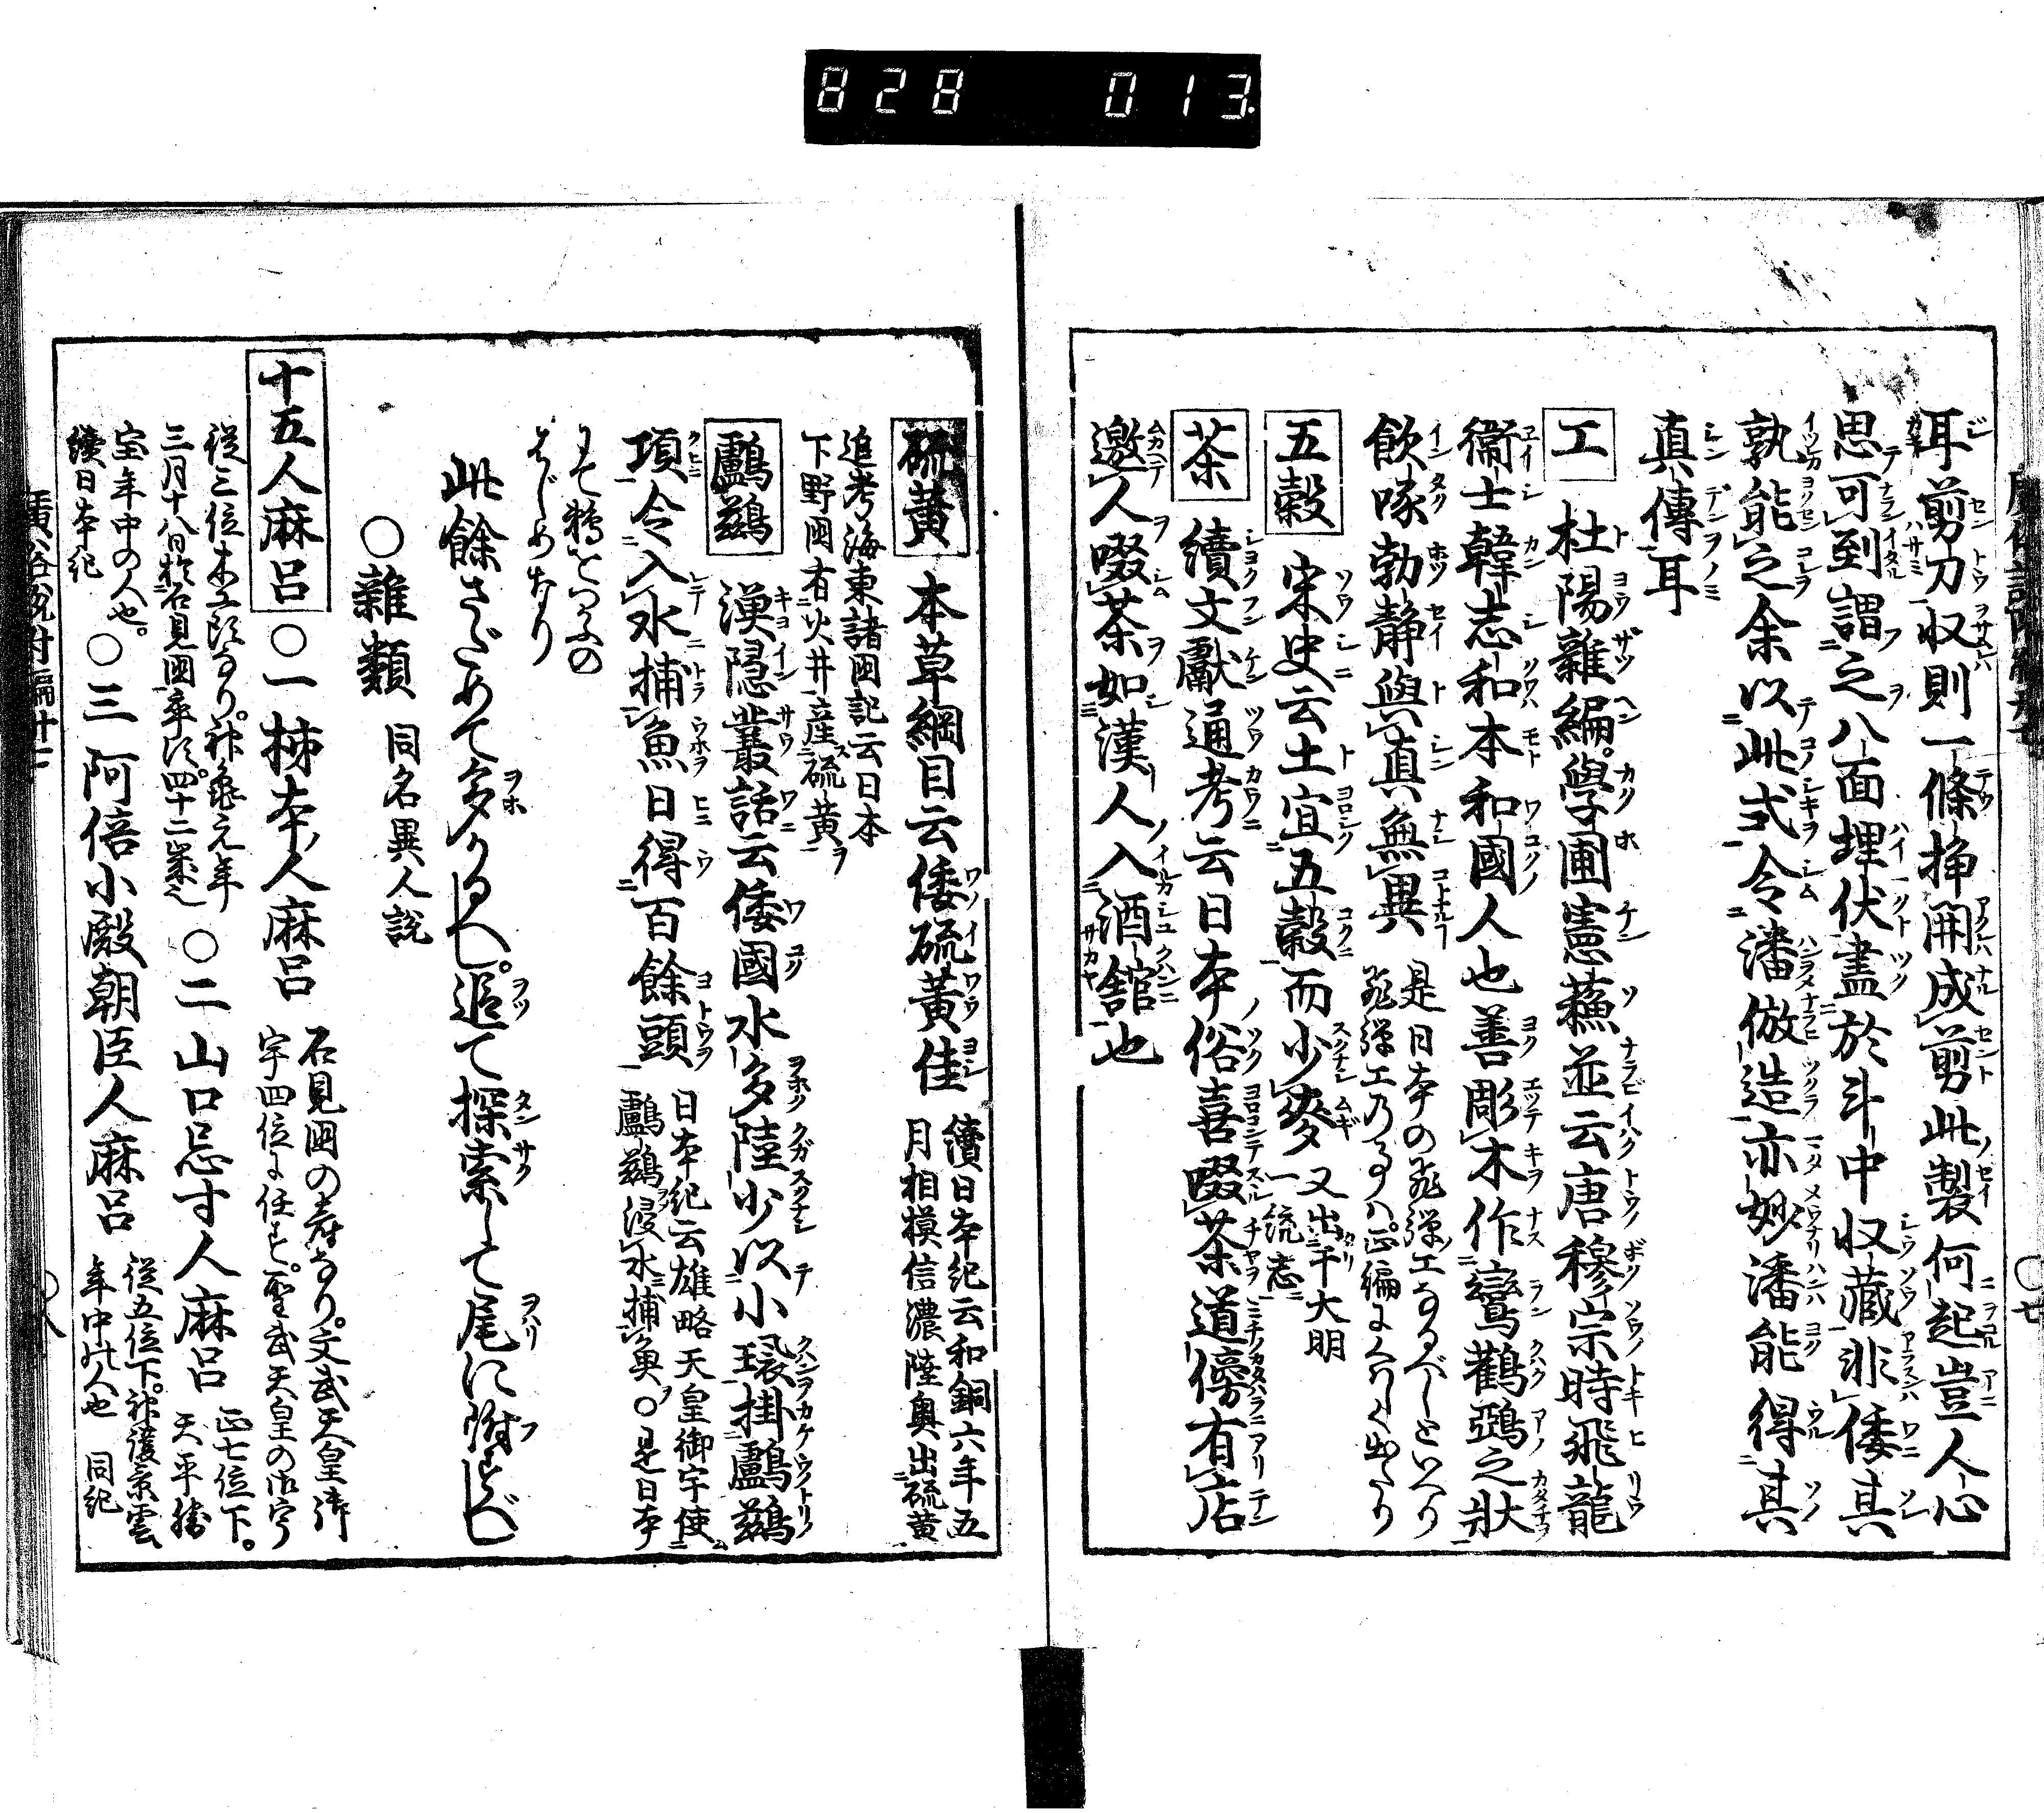 828 013.
耳剪刀収則一條揷開成剪此製何起豈人心
思可到謂之八面埋伏盡於斗中収藏非倭其
孰能之余以此式令潘倣造亦妙潘能得其
真傳耳
工 杜陽雜編學圃憲蘓並云唐穆宗時飛龍
衞士韓志和本和國人也善彫木作鸞鶴鵶之狀
飮啄勃静與真無異 是日本の飛彈工なるべしといへり
飛彈工乃事ハ正編にくハしく出たり
五穀 宋史云土宜五穀而少麥 又出于大明
一統志
茶 續文獻通考云日本俗喜啜茶道傍有店
邀人啜茶如漢人入酒館也
硫黄 本草綱目云倭硫黄佳 續日本紀云和銅六年五
月相摸信濃陸奥出硫黄
追考海東諸國記云日本
下野國有火井産硫黄
鸕鷀 漢隠叢話云倭國水多陸少以小環掛鸕鷀
項令入水捕魚日得百餘頭 日本紀云雄略天皇御宇使
鸕鷀浸水捕魚○是日本
にて鵜をつかふの
はじめなり
此餘さだめて多かるへし。追て探索して尾に附すべし
○雜類 同名異人説
十五人麻呂 ○一柿本人麻呂 石見国の産なり。文武天皇御
宇四位に任ず。聖武天皇の御宇
從三位木工頭なり。神亀元年
三月十八日於石見國卒ス。四十二歳と ○二山口忌寸人麻呂 正七位下。
天平勝
宝年中の人也。
續日本紀 ○三阿倍小殿朝臣人麻呂 從五位下。神護景雲
年中此人也 同紀